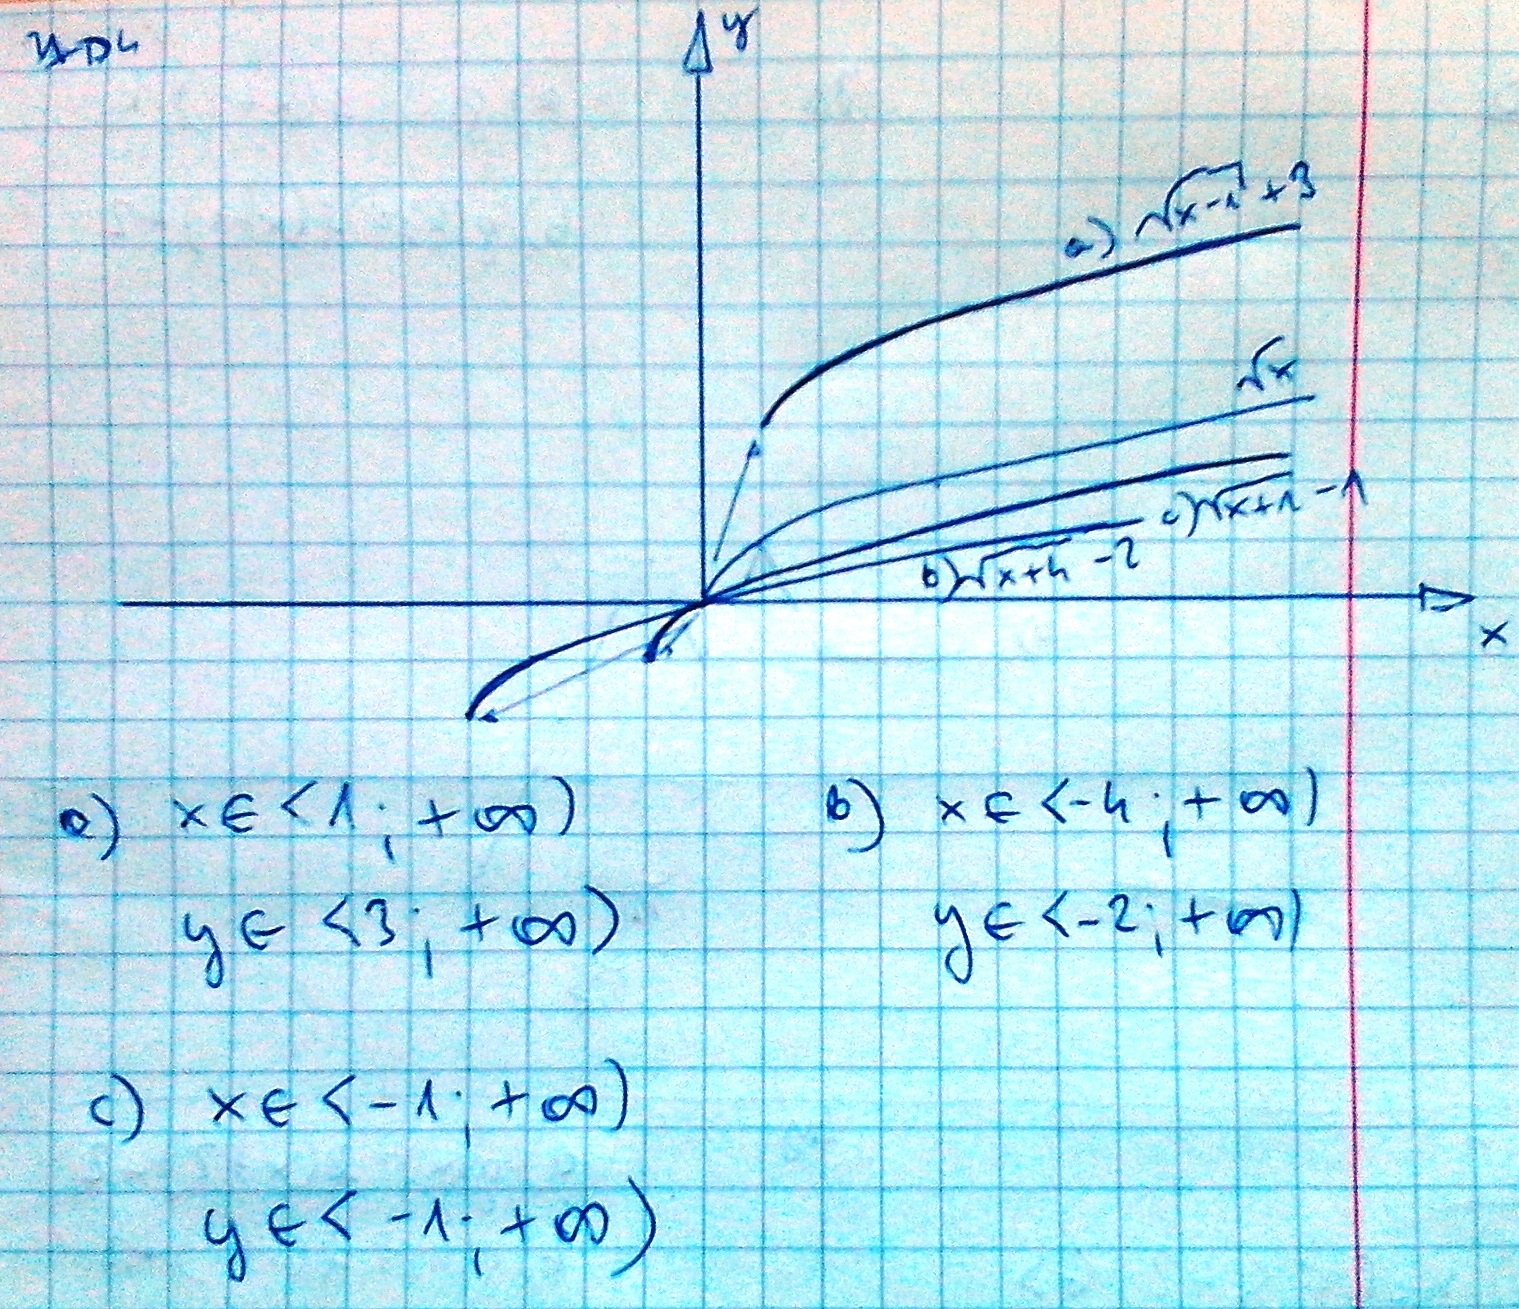 y
a) √x-1 + 3
√x
c) √x+1 - 1
b) √x+4 - 2
x
a) x ∈ <1; +∞)
y ∈ <3; +∞)
b) x ∈ <-4; +∞)
y ∈ <-2; +∞)
c) x ∈ <-1; +∞)
y ∈ <-1; +∞)